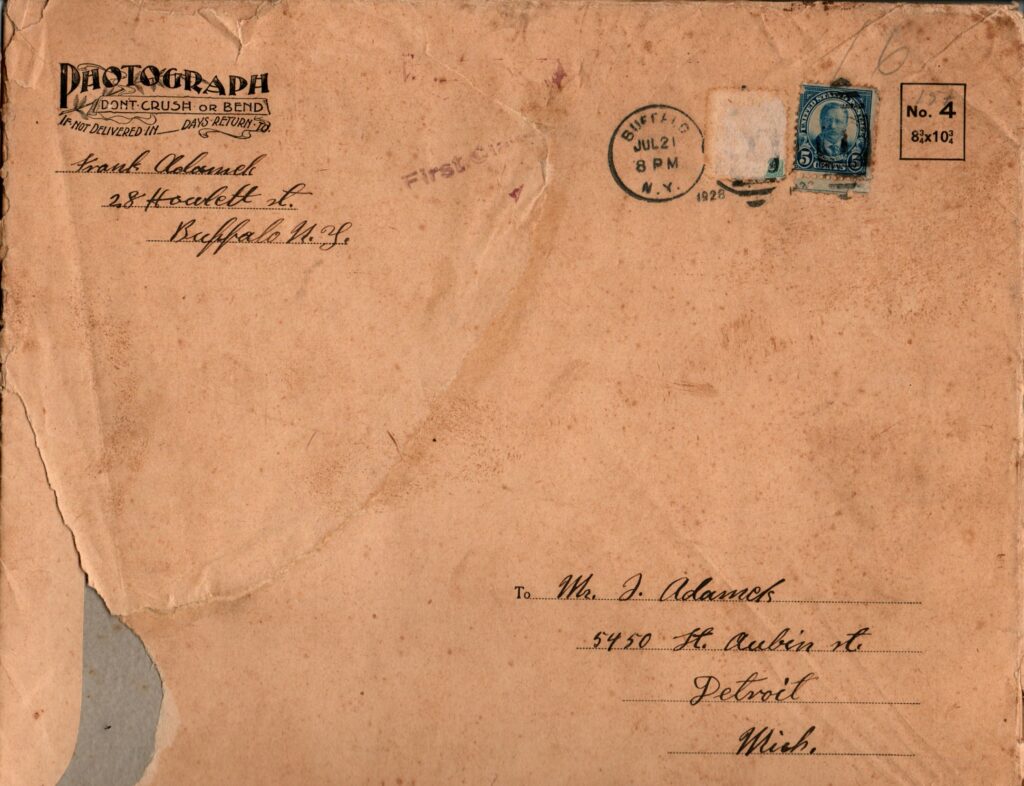 PHOTOGRAPH
DON'T CRUSH OR BEND
IF NOT DELIVERED IN DAYS RETURN TO
Frank Adamek
28 Howlett st.
Buffalo N.Y.
First
BUFFALO
JUL 21
8 PM
N.Y.
1928
UNITED STATES
5 CENTS 5
16
No. 4
8¾x10¾
To Mr. J. Adamek
5450 St. Aubin st.
Detroit
Mich.